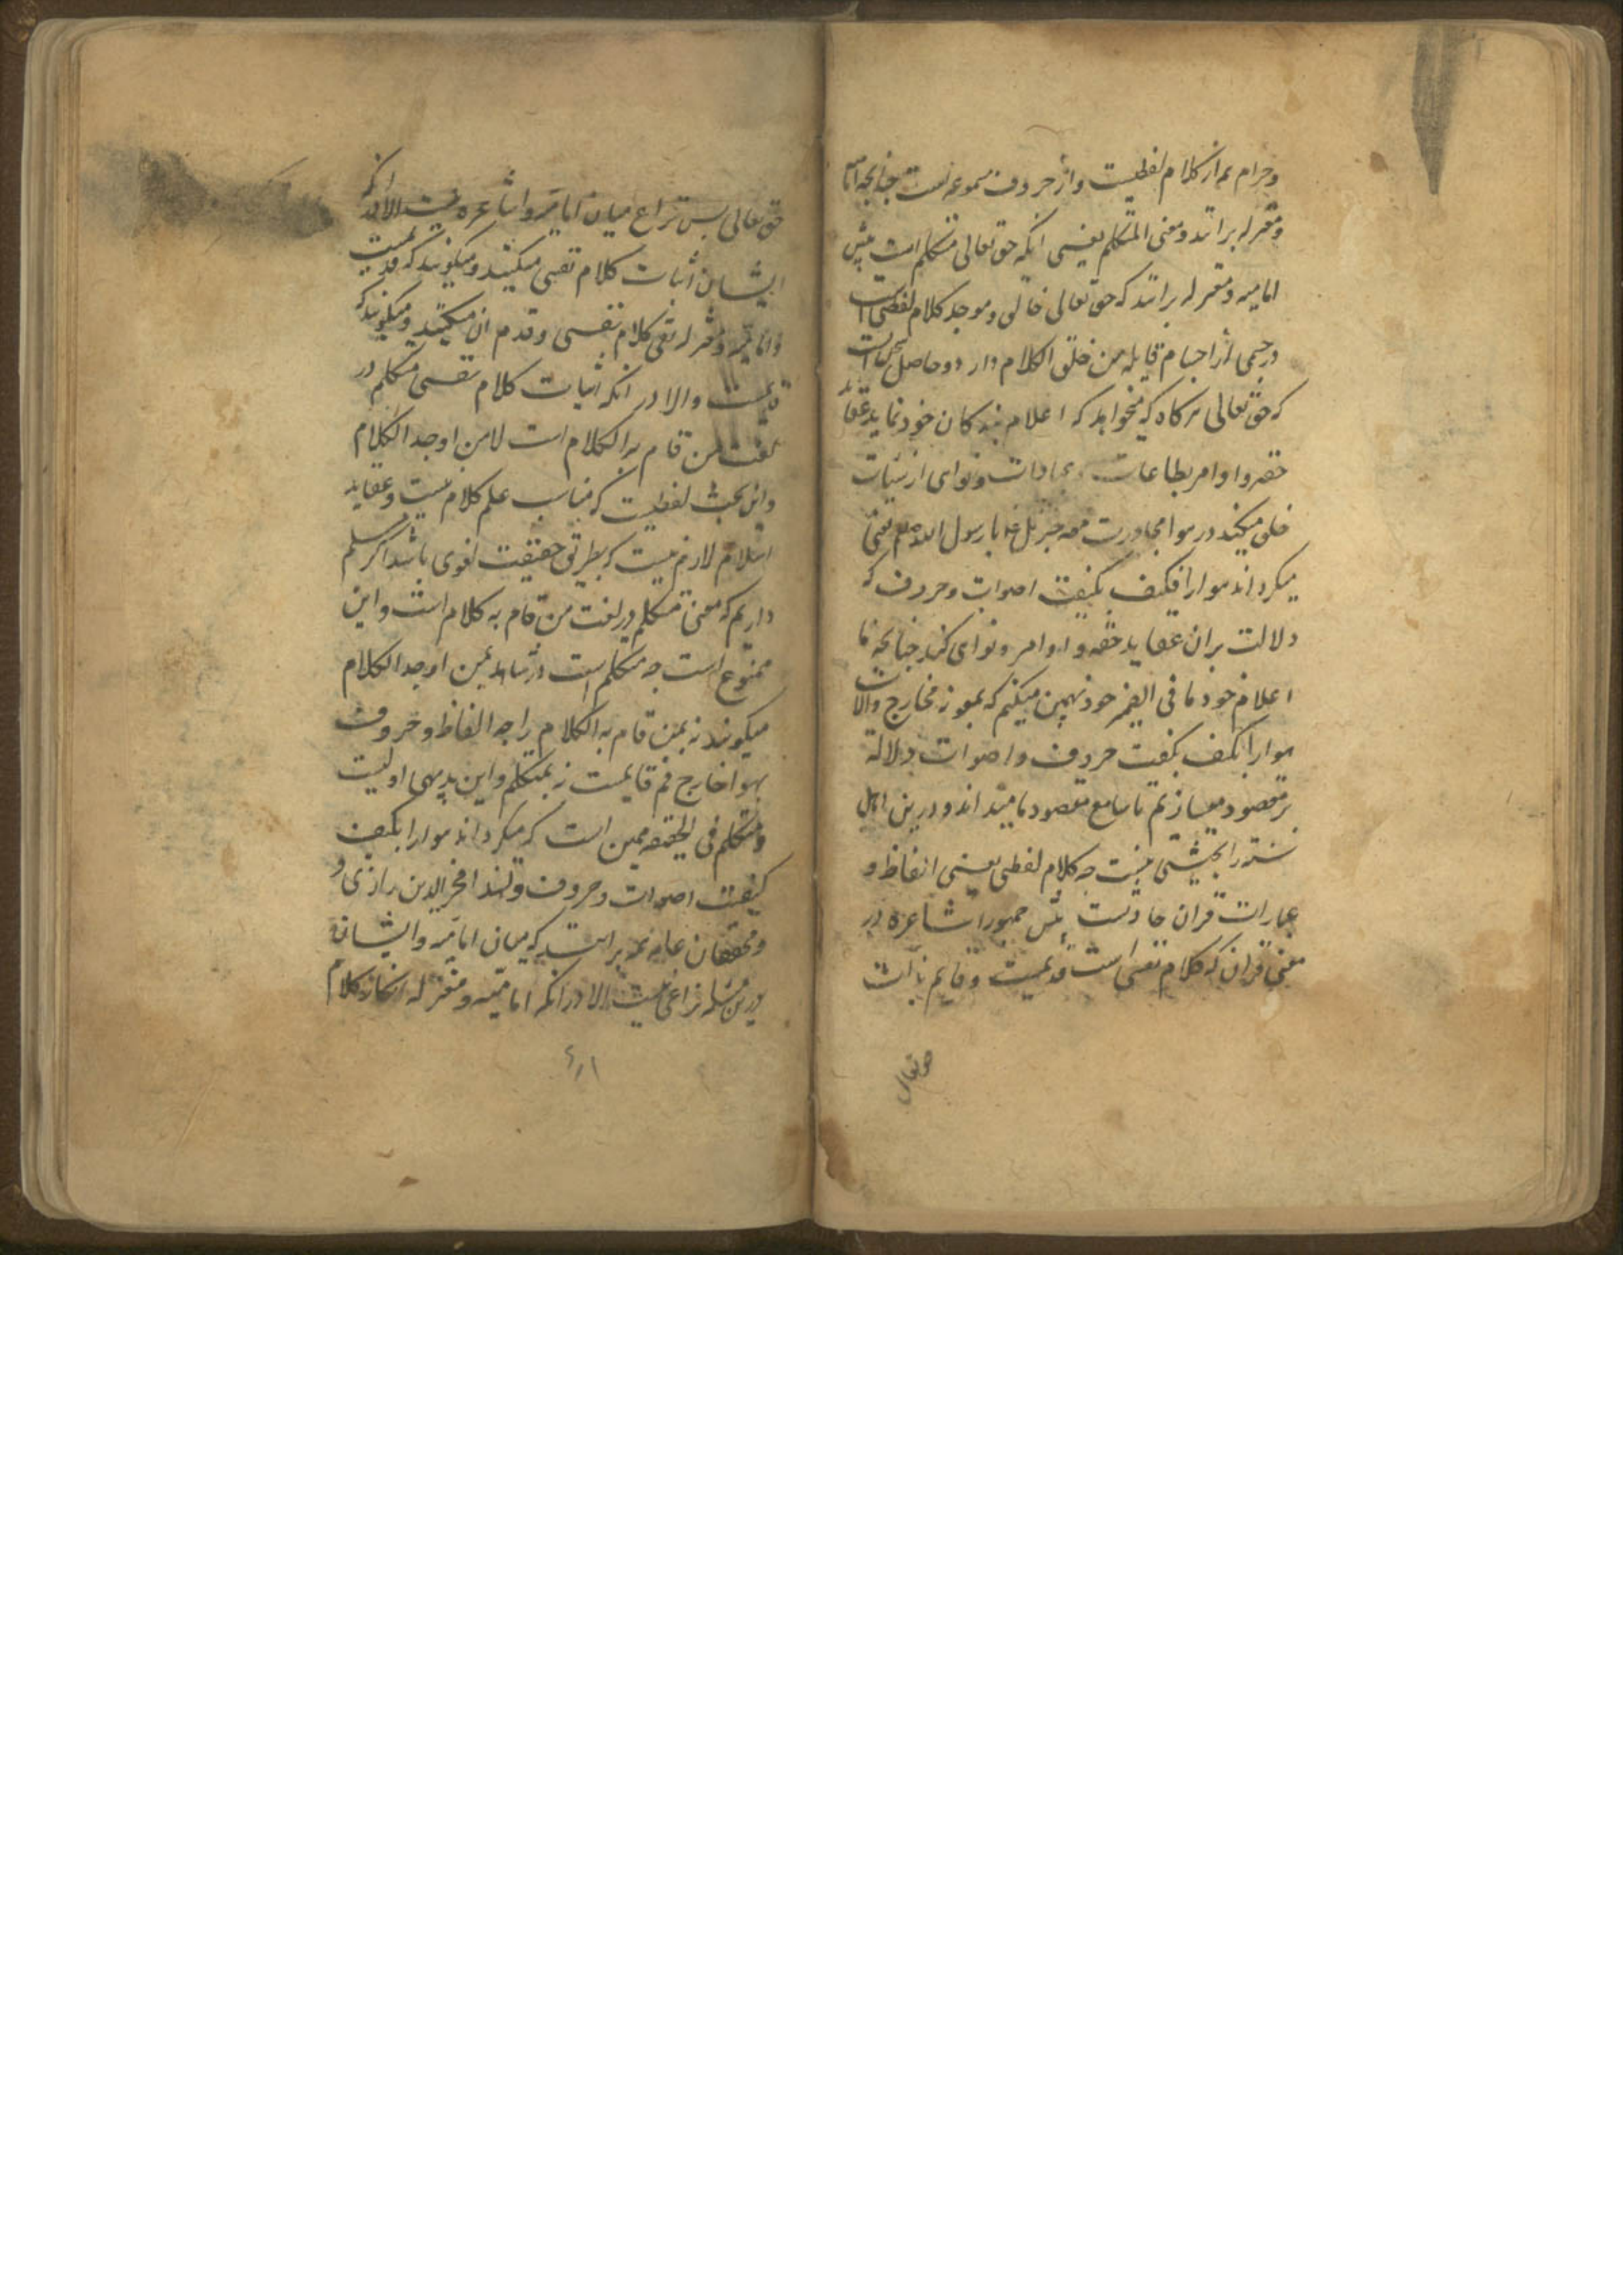 و حرام عم از کلام لفظیست و از حروف مسموعه است چنانچه امامیه
و معتزله برانند و معنی المتکلم یعنی انکه حق تعالی متکلم است پیش
امامیه و معتزله برانند که حق تعالی خالق و موجد کلام لفظی است
در جسمی از اجسام قابله من خلق الکلام دارد و حاصل
که حق تعالی هرکاه که میخواهد که اعلام بندکان خود نماید عقاید
حقه و اوامر بطاعات و عبادات و نواهی از سیئات
خلق میکند در هوا مجاورت معه جبرئیل یا رسول الله یعنی
میکرداند هوا را فیکیف بکیفیت اصوات و حروف که
دلالت بران عقاید حقه و اوامر و نواهی کند چنانچه ما
اعلام خود ما فی الضمیر خود بهمین میکنیم که بمعونه مخارج و الات
هوا را بکیف بکیفیت حروف و اصوات دلالة
بر مقصود میسازیم تا سامع مقصود ما میداند و درین اهل
سنه را بحثی نیست چه کلام لفظی یعنی الفاظ و
عبارات قران حادثست پس جمهور اشاعره در
معنی قران که کلام نفسی است قدیمیست و قایم بذات
حق تعالی
حق تعالی پس نزاع میان امامیه و اشاعره نیست الا در انکه
ایشان اثبات کلام نفسی میکنند و میکویند که قدیمیست
و امامیه و معتزله نفی کلام نفسی و قدم ان میکنند و میکویند که
نیست و الا در انکه اثبات کلام نفسی متکلم در
لغت من قام به الکلام است لا من اوجد الکلام
و این بحث لفظیست که مناسب علم کلام نیست و عقاید
اسلام لازم نیست که بطریق حقیقت لغوی باشد اکر مسلم
داریم که معنی متکلم در لغت من قام به کلام است و این
ممنوع است چه متکلم است در شاهد بمن اوجد الکلام
میکویند نه بمن قام به الکلام را چه الفاظ و حروف
بهوا خارج فم قایمست نه بمتکلم و این بدیهی اولیست
و متکلم فی الحقیقه همین است که میکرداند هوا را بکیف
کیفیت اصوات و حروف و لهذا فخر الدین رازی و
و محققان عامه همه برانند که میان امامیه و ایشان
درین مسله نزاعی نیست الا در انکه امامیه و معتزله انکار کلام